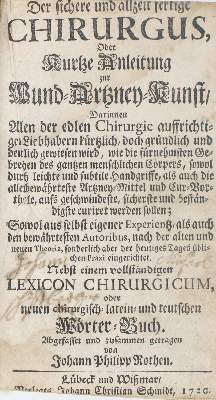 Der sichere und allzeit fertige
CHIRURGUS,
Oder
Kurtze Anleitung
zur
Wund-Artzney-Kunst/
Darinnen
Allen der edlen Chirurgie auffrichti-
gen Liebhabern kürtzlich, doch gründlich und
deutlich gewiesen wird, wie die fürnehmsten Ge-
brechen des gantzen menschlichen Cörpers, sowol
durch leichte und subtile Handgriffe, als auch die
allerbewährteste Artzney-Mittel und Cur-Vor-
theile, aufs geschwindeste, sicherste und bestän-
digste curiret werden sollen;
Sowol aus selbst eigener Experientz, als auch
den bewährtesten Autoribus, nach der alten und
neuen Theoria, sonderlich aber der heutiges Tages üblich-
sten Praxi eingerichtet.
Nebst einem vollständigen
LEXICON CHIRURGICUM,
oder
neuen chirurgisch-latein- und teutschen
Wörter-Buch.
Abgefasset und zusammen getragen
von
Johann Philipp Rothen.
Lübeck und Wißmar/
Verlegts Johann Christian Schmidt, 1720.